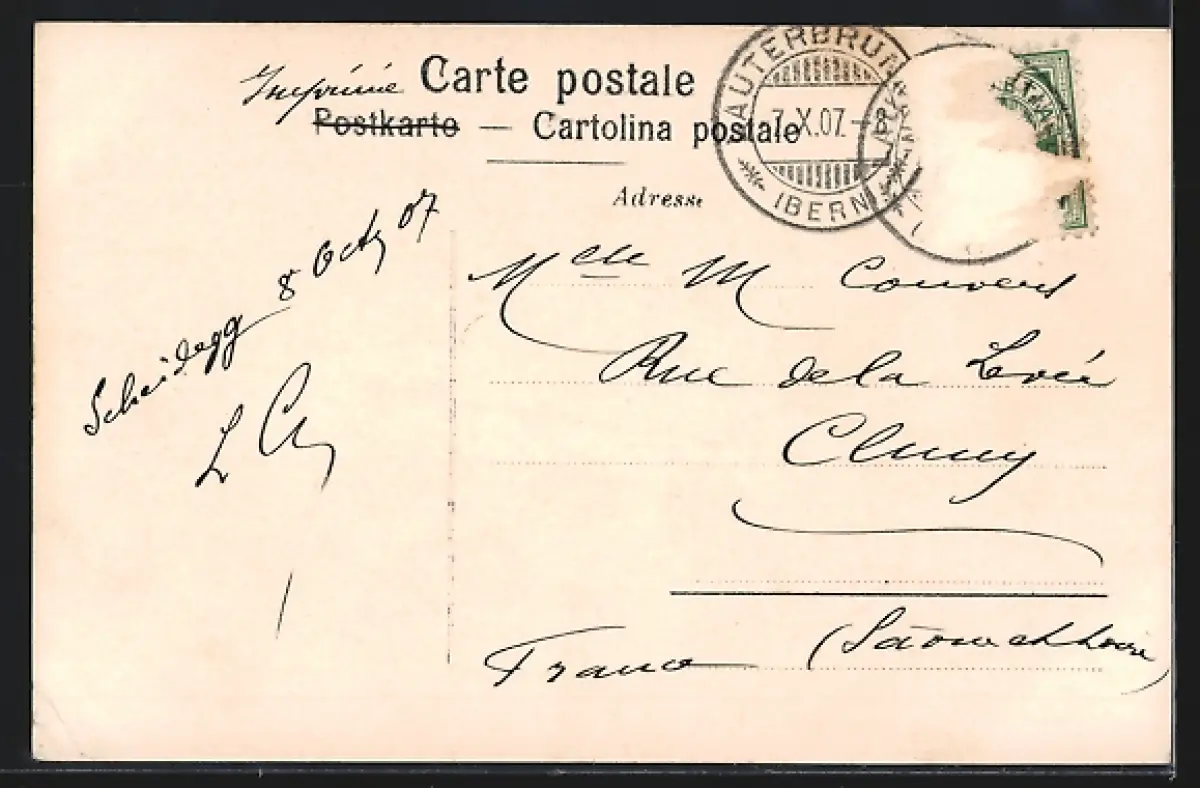 Imprimé Carte postale
Postkarte — Cartolina postale
LAUTERBRUN
7.X.07.–8
(BERN)
Adresse
Scheidegg 8 Oct 07
Mlle M Convert
Rue de la Levée
Cluny
France (Saône et Loire)